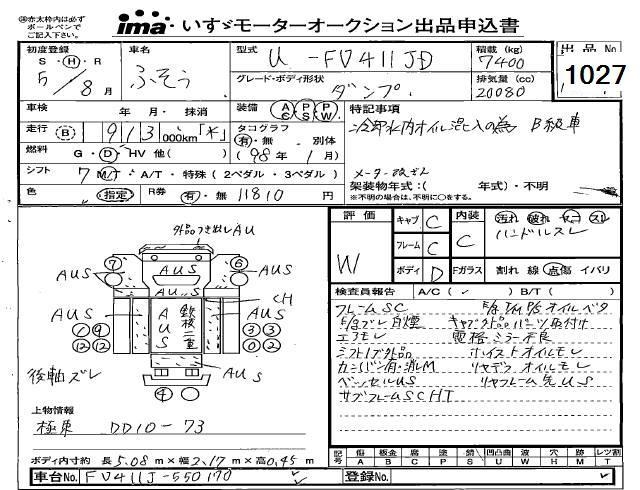 ㊟赤太枠内は必ず
ボールペンで
ご記入下さい。
ima いすゞモーターオークション出品申込書
初度登録 車名 型式 U-FV411JD 積載(kg) 7400 出品No
S・H・R 5/8月 ふそう グレード・ボディ形状 ダンプ 排気量(cc) 20080 1027
車検 年 月・抹消 装備 AC PS PW 特記事項
走行 B 1913 000km「*」 タコグラフ 有・無 別体 冷却水内オイル混入の為 B級車
燃料 G・D・HV 他( ) (98年 1月)
シフト 7 M/T・A/T・特殊(2ペダル・3ペダル) メーター改ざん
架装物年式:( 年式)・不明
色 (指定) R券 有・無 11810 ※不明の場合は、不明に○をする。
外品フロつき出し AU
評価 W キャブ C 内装 C 汚れ 破れ コゲ スレ
フレーム C ハンドルスレ
ボディ D Fガラス 割れ 線 点傷 イバリ
検査員報告 A/C( ✓ ) B/T( )
⑦ AUS AUS ⑥ AUS
AUS
CH
AUS 鉄板二重
① ⑨ ③ ③
⑫ ⑫ ② ②
後軸ズレ AUS
④
フレームSC E/g T/M P/S オイルベタ
E/gブレ 白煙 キャブ外品パーツ取付け
エアモレ 電格ミラー不良
シフトノブ外品 ホイストオイルモレ
カンバン有・消しM リヤデフオイルモレ
ベッセルUS リヤフレーム先US
サブフレームSCHT
上物情報
極東 DD10-73
ボディ内寸約 長5.08m×幅2.17m×高0.45m
記号 傷 A 板金 B 腐 C 塗 P 錆 S 凹凸曲 U 波 W 穴 H 折 M 歪 T レンズ割
車台No. FV411J-550170 登録No.